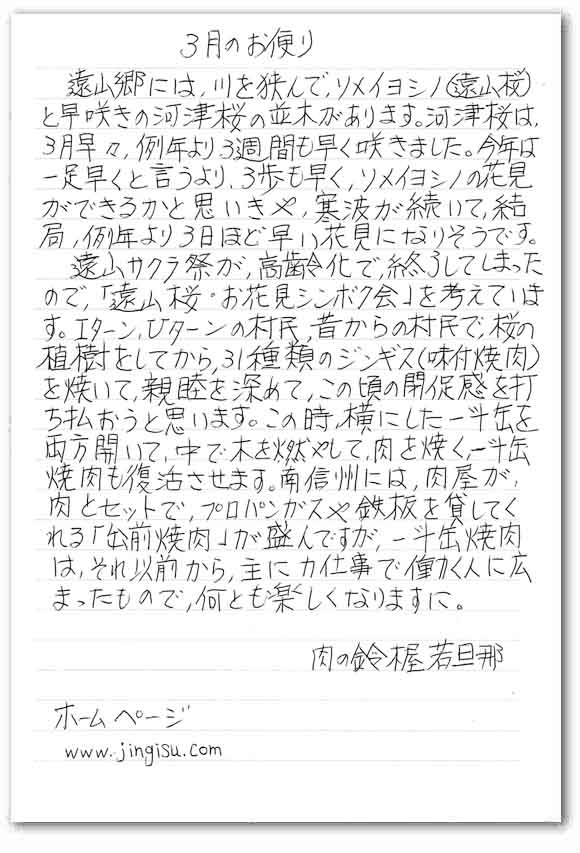 3月のお便り
遠山郷には,川を狭んで,ソメイヨシノ(遠山桜)
と早咲きの河津桜の並木があります。河津桜は,
3月早々,例年より3週間も早く咲きました。今年は
一足早くと言うより,3歩も早く,ソメイヨシノの花見
ができるかと思いきや,寒波が続いて,結
局,例年より3日ほど早い花見になりそうです。
遠山サクラ祭が,高齢化で,終了してしまった
ので,「遠山桜・お花見シンボク会」を考えていま
す。Iターン,Uターンの村民,昔からの村民で,桜の
植樹をしてから,31種類のジンギス(味付焼肉)
を焼いて,親睦を深めて,この頃の閉促感を打
ち払おうと思います。この時,横にした一斗缶を
両方開いて,中で木を燃やして,肉を焼く,一斗缶
焼肉も復活させます。南信州には,肉屋が,
肉とセットで,プロパンガスや鉄板を貸してく
れる「出前焼肉」が盛んですが,一斗缶焼肉
は,それ以前から,主に力仕事で働く人に広
まったもので,何とも楽しくなりますに。
肉の鈴木屋 若旦那
ホームページ
www.jingisu.com